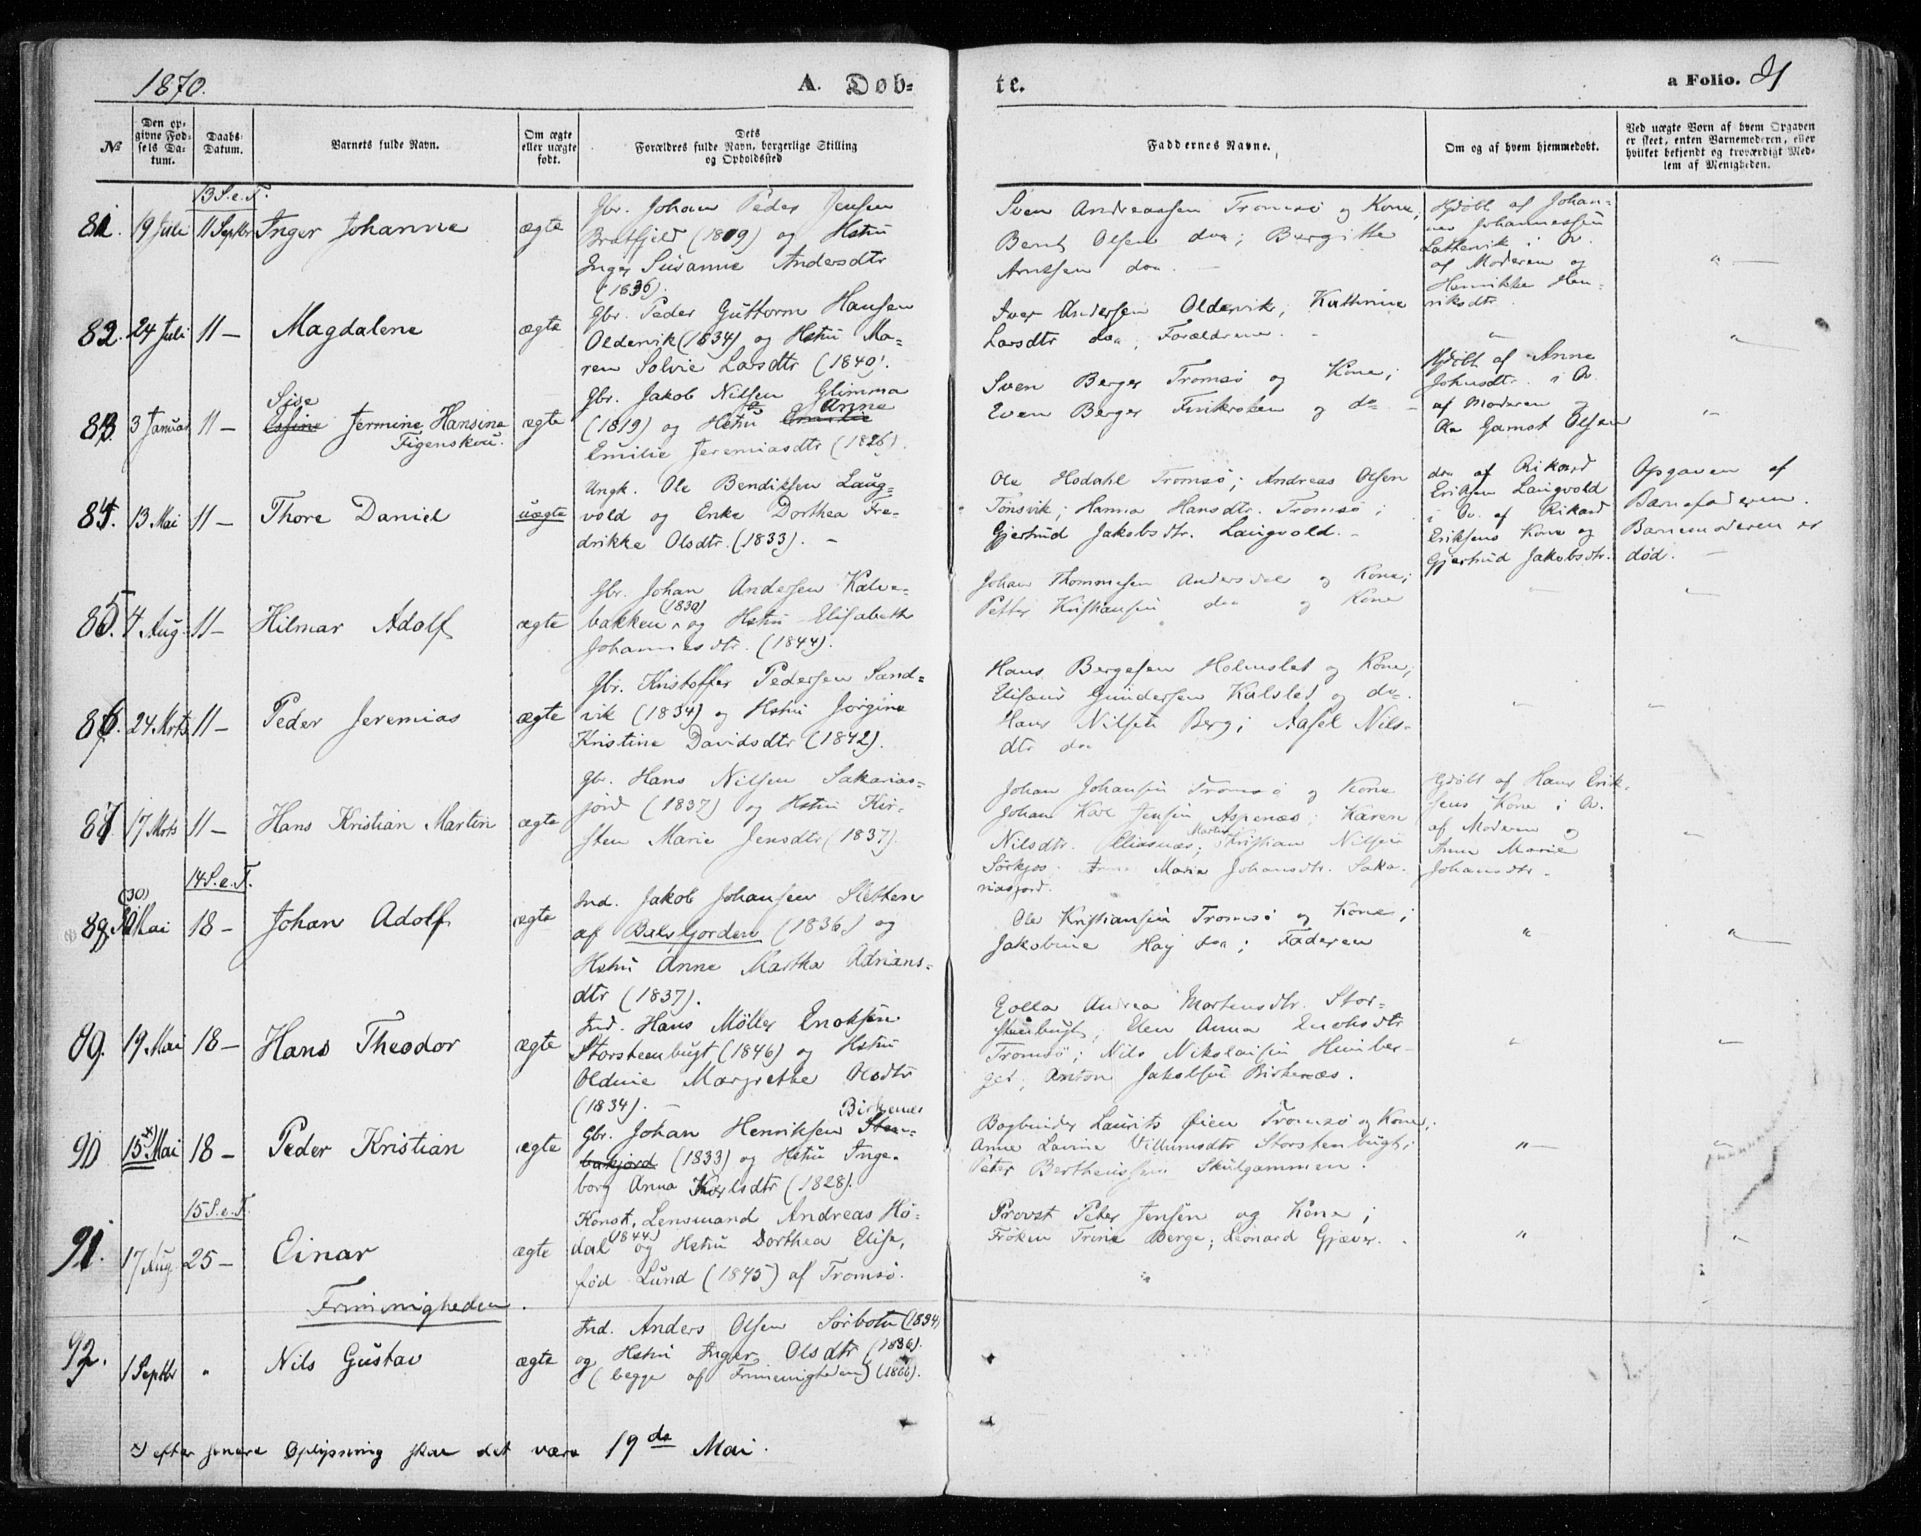 1870.
A. Døb-
te.
a Folio. 21
№
Den op-
givne Fød-
sels Da-
tum.
Daabs-
Datum.
Barnets fulde Navn.
Om ægte
eller uægte
født.
Dets
Forældres fulde Navn, borgerlige Stilling
og Opholdssted
Faddernes Navne.
Om og af hvem hjemmedøbt.
Ved uægte Børn af hvem Opgaven
er skeet, enten Barnemoderen, eller
hvilket bekjendt og troværdigt Med-
lem af Menigheden.
13 S. e. T.
81. 19 Juli 11 Septbr Inger Johanne ægte
Gbr. Johan Peder Jensen
Bratfjeld (1819) og Hstru
Inger Susanne Andersdtr
(1836).
Sven Andreassen Tromsø og Kone;
Bernt Olsen doa; Bergitte
Arntsen doa. -
Hjdøbt af Johan-
nes Johannessen
Lattervik i Ov.
af Moderen og
Henrikke Hen-
riksdtr.
" -
82. 24 Juli 11 - Magdalene ægte
Gbr. Peder Guttorm Hansen
Oldervik (1834) og Hstru Ma-
ren Solvie Larsdtr (1840).
Iver Andersen Oldervik; Kathrine
Larsdtr doa; Forældrene. -
"
" -
83. 3 Januar 11 - Sise
Jermine Hansine
Figenskou. ægte
Gbr. Jakob Nilsen Glimma
(1819) og Hstru Anne
Emilie Jeremiasdtr (1826).
Sven Berger Tromsø og Kone;
Even Berger Finkroken og do -
Hjdøbt af Anne
Johnsdtr. i Ov.
af Moderen og
Ole Gamst Olsen
" -
84. 13 Mai 11 - Thore Daniel uægte
Ungk. Ole Bendiksen Laug-
vold og Enke Dorthea Fre-
drikke Olsdtr. (1833). -
Ole Hodahl Tromsø; Andreas Olsen
Tønsvik; Hanna Hansdtr. Tromsø;
Gjertrud Jakobsdtr. Langvold. -
doa af Rikard
Eriksen Langvold
i Ov. af Rikard
Eriksens Kone og
Gjertrud Jakobsdtr.
Opgaven af
Barnefaderen.
Barnemoderen er
død. -
85. 4 Aug. 11 - Hilmar Adolf ægte
Gbr. Johan Andersen Kalve-
bakken (1830) og Hstru Elisabeth
Johannesdtr. (1844).
Johan Thommesen Andersdal og Kone;
Petter Kristiansen doa og Kone
" -
" -
86. 24 Mrts. 11 - Peder Jeremias ægte
Gbr. Kristoffer Pedersen Sand-
vik (1834) og Hstru Jørgine
Kristine Davidsdtr (1842).
Hans Bergesen Holmslet og Kone;
Elisaus Gundersen Kalslet og do.
Hans Nilsen Berg; Aasel Nils-
dtr doa
" -
" -
87. 17 Mrts 11 - Hans Kristian Martin ægte
Gbr. Hans Nilsen Sakarias-
jord (1837) og Hstru Kir-
sten Marie Jensdtr (1837).
Johan Johansen Tromsø og Kone
Johan Karl Jensen Aspenæs; Karen
Nilsdtr. Eliasnæs; Martin Kristian Nilsen
Sørkjos; Anne Maria Johansdtr. Saka-
riasjord.
Hjdøbt af Hans Erik-
sens Kone i Ov.
af Moderen og
Anne Marie
Johansdtr.
" -
14 S. e. T.
88. (30) 30 Mai 18 - Johan Adolf ægte
Ind. Jakob Johansen Sletten
af Balsfjorden (1836) og
Hstru Anne Martha Adrians-
dtr (1837).
Ole Kristiansen Tromsø og Kone;
Jakobine Haj doa; Faderen
"
" -
89. 19 Mai 18 - Hans Theodor ægte
Ind. Hans Møller Enoksen
Storsteenbugt (1846) og Hstru
Oldine Margrethe Olsdtr
(1834). -
Golla Andrea Mortensdtr. Stor-
stenbugt; Elen Anna Enoksdtr
Tromsø; Nils Nikolaisen Himber-
get; Anton Jakobsen Birkenæs.
" -
" -
90 15 x) Mai 18 - Peder Kristian ægte
Gbr. Johan Henriksen Birkenæs Sten-
bakjord (1833) og Hstru Inge-
borg Anna Karlsdtr (1828).
Bogbinder Laurits Øien Tromsø og Kone;
Anne Lavine Villumsdtr Storstenbugt;
Peter Bertheussen Skulgammen.
" -
" -
15 S. e. T.
91. 17 Aug. 25 - Einar ægte
Konst. Lensmand Andreas Hø-
dal (1844) og Hstru Dorthea Elise,
fød Lund (1845) af Tromsø.
Provst Peter Jensen og Kone;
Frøken Trine Berge; Leonard Gjæver.
"
" -
Frimenigheden.
92. 1 Septbr " Nils Gustav ægte
Ind. Anders Olsen Sørbotn (1834)
og Hstru Inger Olsdtr (1836).
(begge af Frimenigheden) (1866).
x) efter senere Oplysning skal det være 19de Mai.